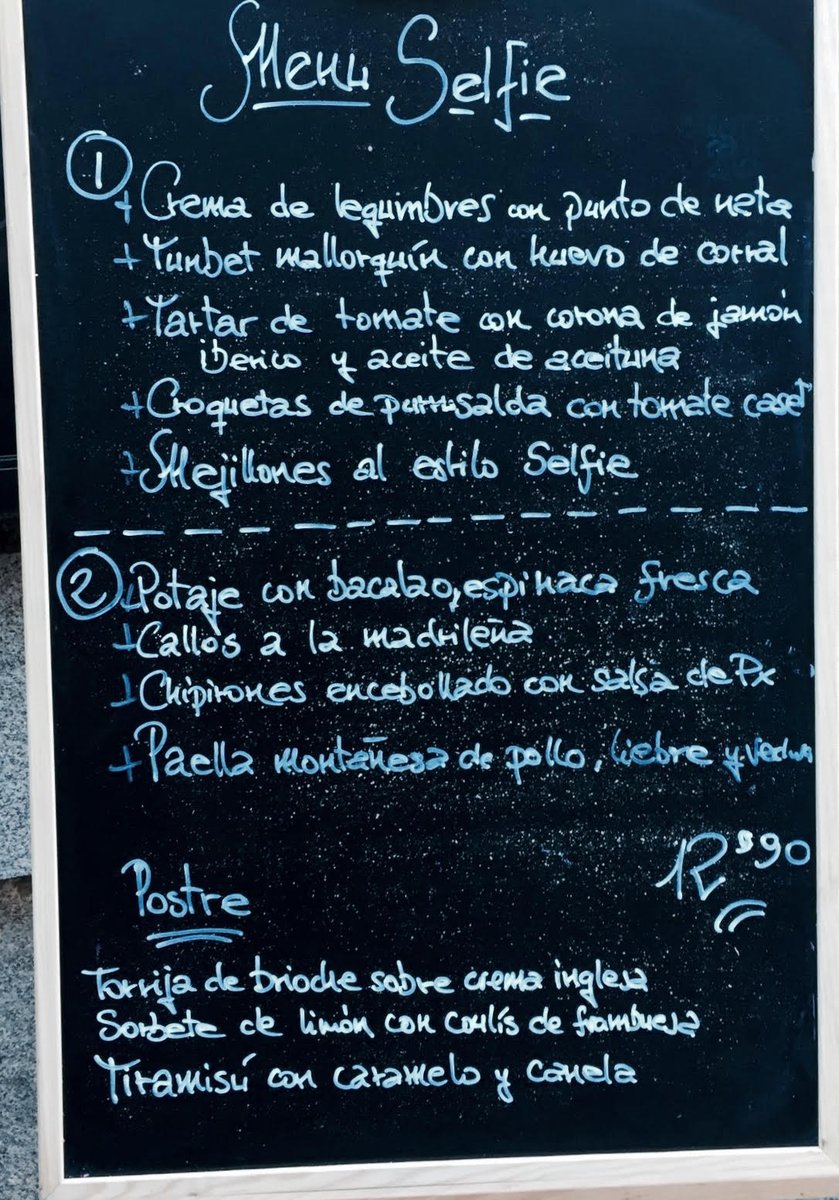 Menu Selfie
1
+ Crema de legumbres con punto de nata
+ Tunbet mallorquín con huevo de corral
+ Tartar de tomate con corona de jamón
iberico y aceite de aceituna
+ Croquetas de purrusalda con tomate caset
+ Mejillones al estilo Selfie
2
+ Potaje con bacalao, espinaca fresca
+ Callos a la madrileña
+ Chipirones encebollado con salsa de Px
+ Paella montañesa de pollo, liebre y
12'90
Postre
Torrija de brioche sobre crema inglesa
Sorbete de limón con coulís de frambuesa
Tiramisú con caramelo y canela